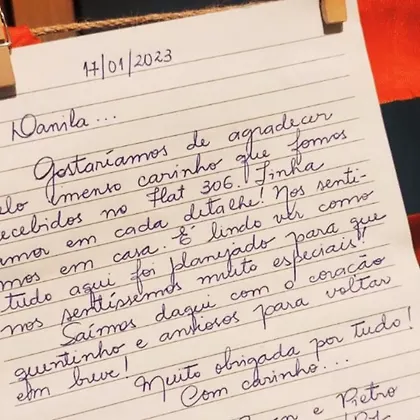 17/01/2023
Danila...
Gostaríamos de agradecer
elo imenso carinho que fomos
ecebidos no Flat 306. Tinha
amor em cada detalhe! Nos senti-
mos em casa. É lindo ver como
tudo aqui foi planejado para que
nos sentíssemos muito especiais!
Saímos daqui com o coração
quentinho e ansiosos para voltar
em breve!
Muito obrigada por tudo!
Com carinho...
e Pietro